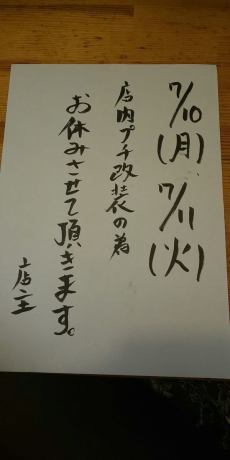 7/10(月)、7/11(火)
店内プチ改装の為
お休みさせて頂きます。
店主